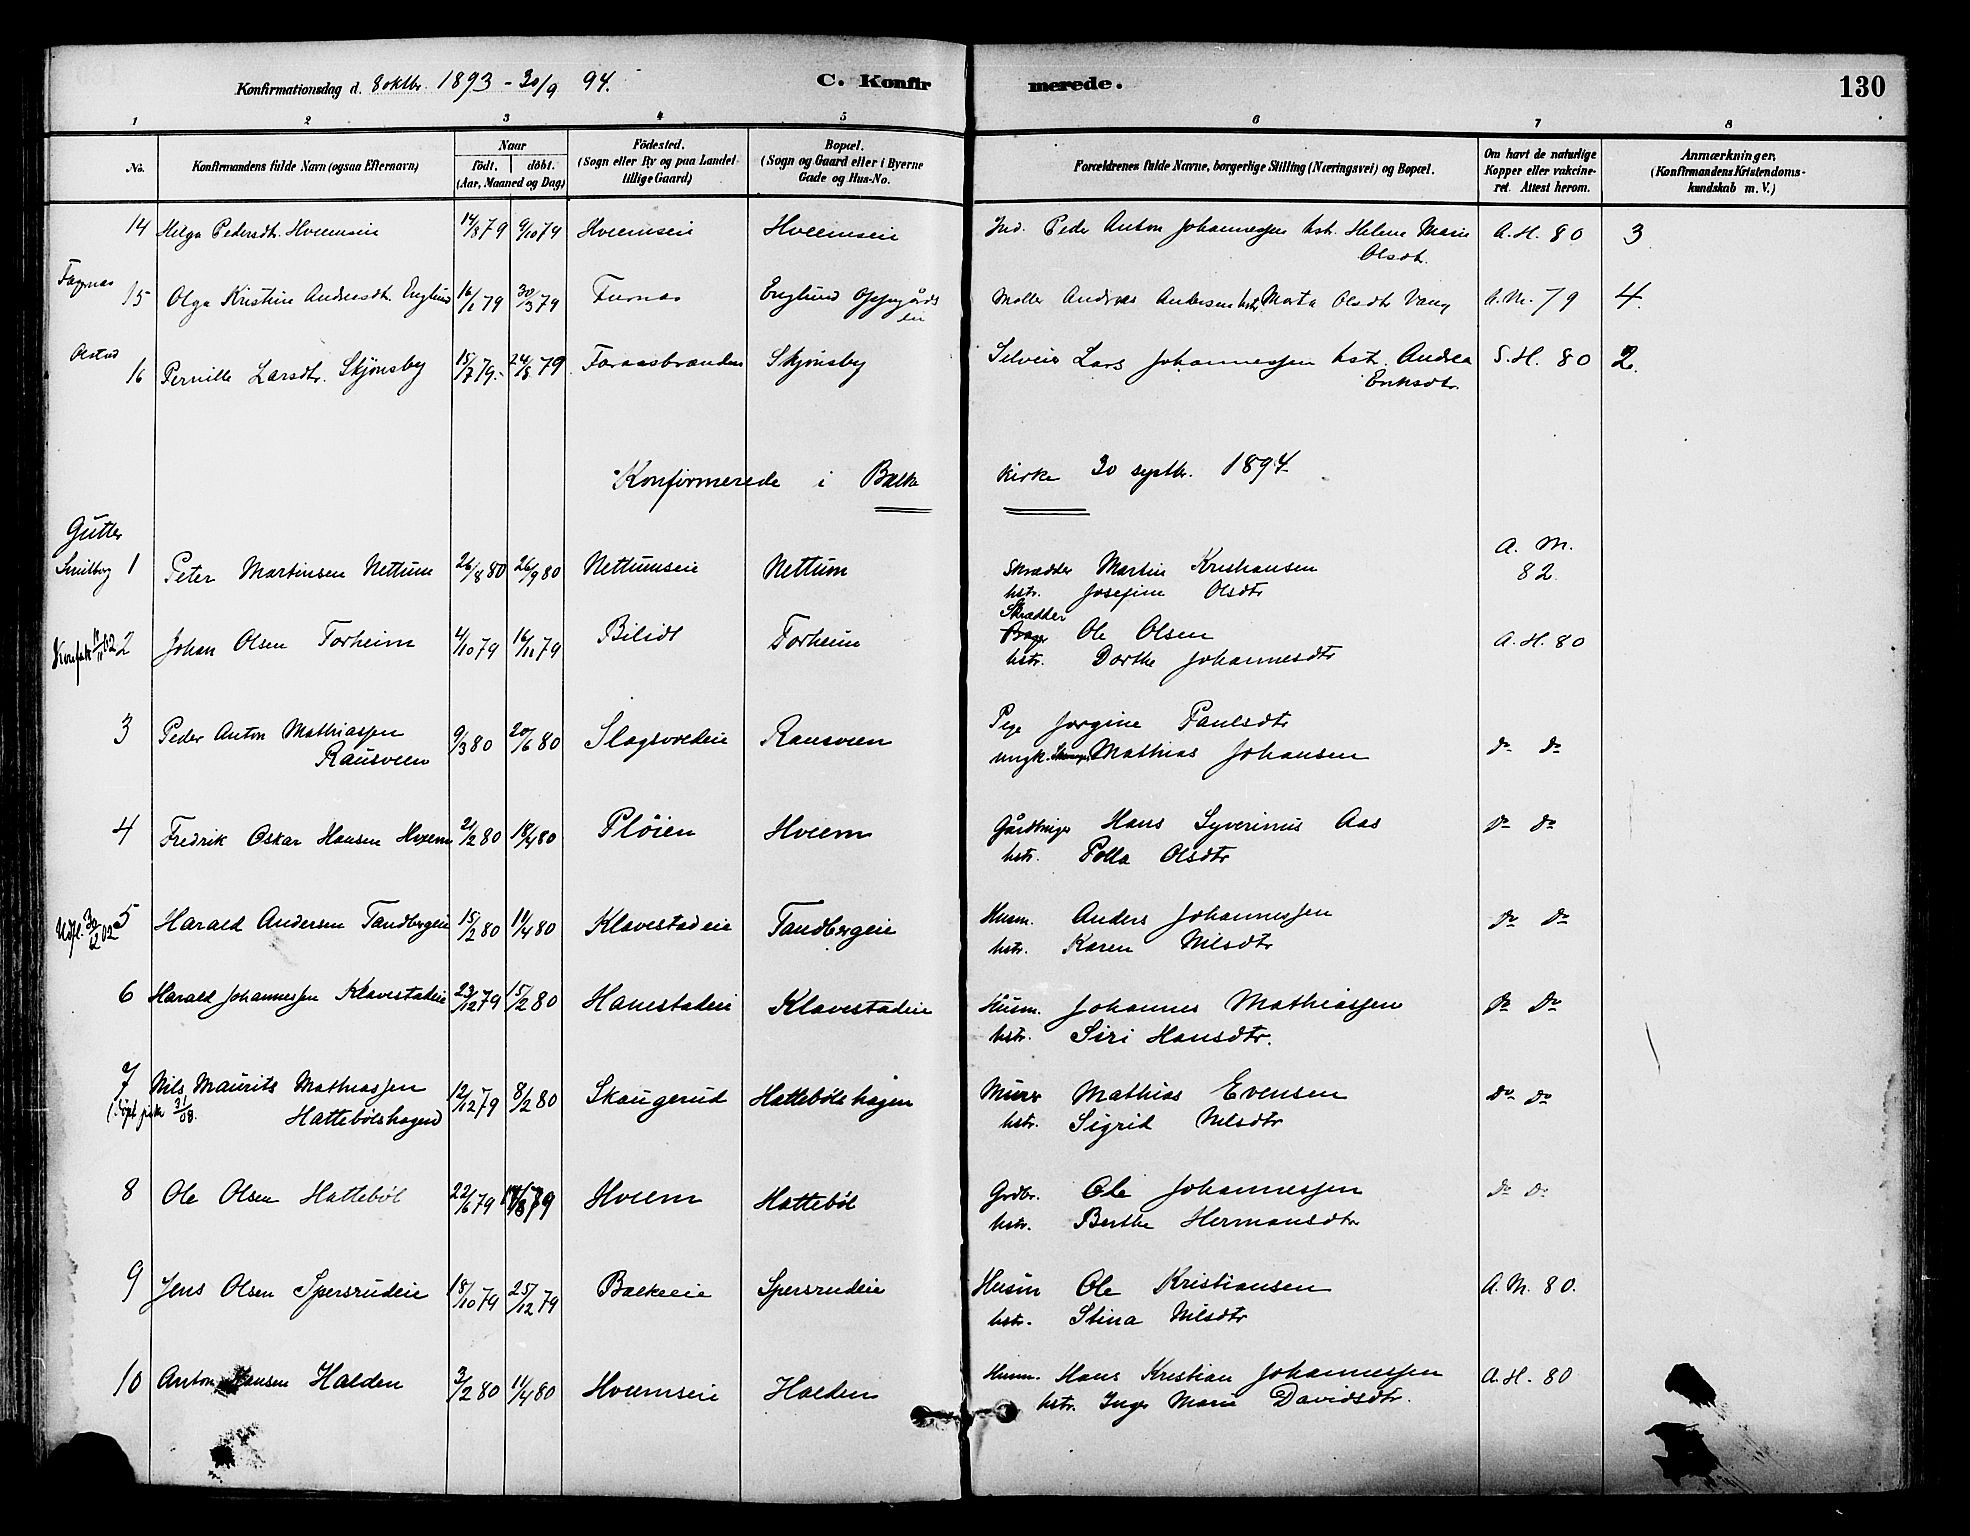 Konfirmationsdag d. 8 oktbr. 1893 - 30/9 94. C. Konfirmerede. 130
1 2 3 4 5 6 7 8
No. Konfirmandens fulde Navn (ogsaa Efternavn) Naar födt. döbt. (Aar, Maaned og Dag) Födested. (Sogn eller By og paa Landet tillige Gaard) Bopæl. (Sogn og Gaard eller i Byerne Gade og Hus-No. Forældrenes fulde Navne, borgerlige Stilling (Næringsvei) og Bopæl. Om havt de naturlige Kopper eller vakcineret. Attest herom. Anmærkninger, (Konfirmandens Kristendomskundskab m. V.)
14 Helga Pedersdtr. Hveemseie 14/8 79 9/10 79 Hveemseie Hveemseie Ind. Peder Anton Johannessen hstr. Helene Marie Olsdt. A. H. 80 3
Fagrnas
15 Olga Kristine Andersdtr. Englund 16/1 79 30/3 79 Furnas Englund Oppegårds eie Møller Andreas Andersen hstr. Marta Olsdtr Vang A. M. 79 4.
Olstad
16 Pernille Larsdtr. Skjønsby 15/7 79. 24/8 79 Foraasbranden Skjønsby Selveier Lars Johannessen hstr. Andrea Eriksdtr. S. H. 80 2.
Konfirmerede i Balke kirke 30 septbr. 1894
Gutter
Smidbog 1 Peter Martinsen Nettum 26/8 80 26/9 80 Nettumseie Nettum Skrædder Martin Kristiansen A. M. 82.
hstr. Josefine Olsdtr
2 Johan Olsen Forheim 4/10 79 16/11 79 Bilidt Forheim Skrædder Ole Olsen A. H. 80
hstr. Dorthe Johannesdtr
3 Peder Anton Mathiassen Rausveen 9/3 80 20/6 80 Slagsvoldeie Rausveen Pige Jorgine Paulsdtr
ungk. Mathias Johansen do do
4 Fredrik Oskar Hansen Hveem 21/2 80 18/4 80 Pløien Hveem Gårdbruger Hans Syverinus Aas do do
hstr. Polla Olsdtr
5 Harald Andersen Tandbergeie 15/2 80 11/4 80 Klavestadeie Tandbergeie Husm. Anders Johannessen do do
hstr. Karen Nilsdtr
6 Harald Johannessen Klavestadeie 23/12 79 15/2 80 Hanestadeie Klavestadeie Husm. Johannes Mathiassen do do
hstr. Siri Hansdtr.
7 Nils Maurits Mathiassen Hattebölshagen 12/12 79 8/2 80 Skaugerud Hattebölshagen Murer Mathias Evensen do do
hstr. Sigrid Nilsdtr
8 Ole Olsen Hatteböl 22/6 79 17/8 79 Hveem Hatteböl Grdbr. Ole Johannessen do do
hstr. Berthe Hermansdtr
9 Jens Olsen Spersrudeie 18/10 79 25/12 79 Balkeeie Spersrudeie Husm Ole Kristiansen A. M. 80.
hstr. Stina Nilsdtr
10 Anton Hansen Halden 3/2 80 11/4 80 Hveemseie Halden Husm. Hans Kristian Johannessen A. H. 80
hstr. Inger Marie Davidsdtr.